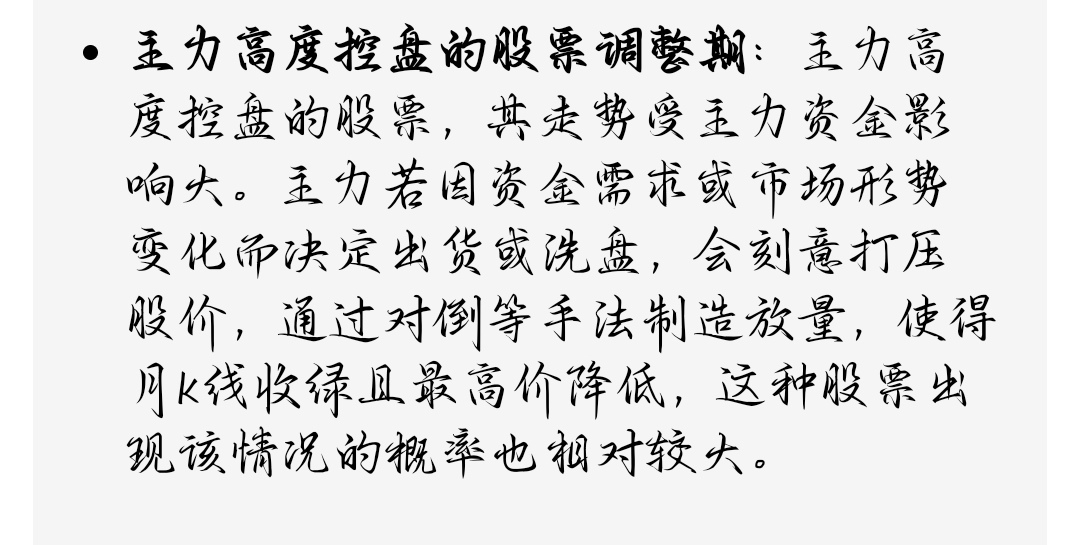 • 主力高度控盘的股票调整期：主力高
度控盘的股票，其走势受主力资金影
响大。主力若因资金需求或市场形势
变化而决定出货或洗盘，会刻意打压
股价，通过对倒等手法制造放量，使得
月K线收绿且最高价降低，这种股票出
现该情况的概率也相对较大。